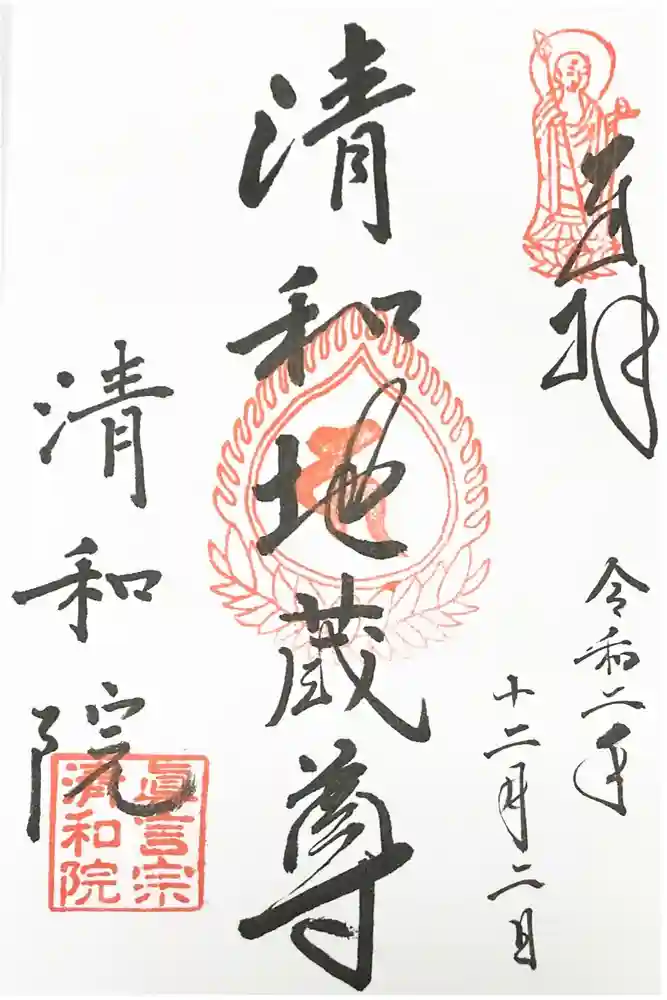 奉拝
令和二年
十二月二日
清和地蔵尊
清和院
眞言宗
清和院